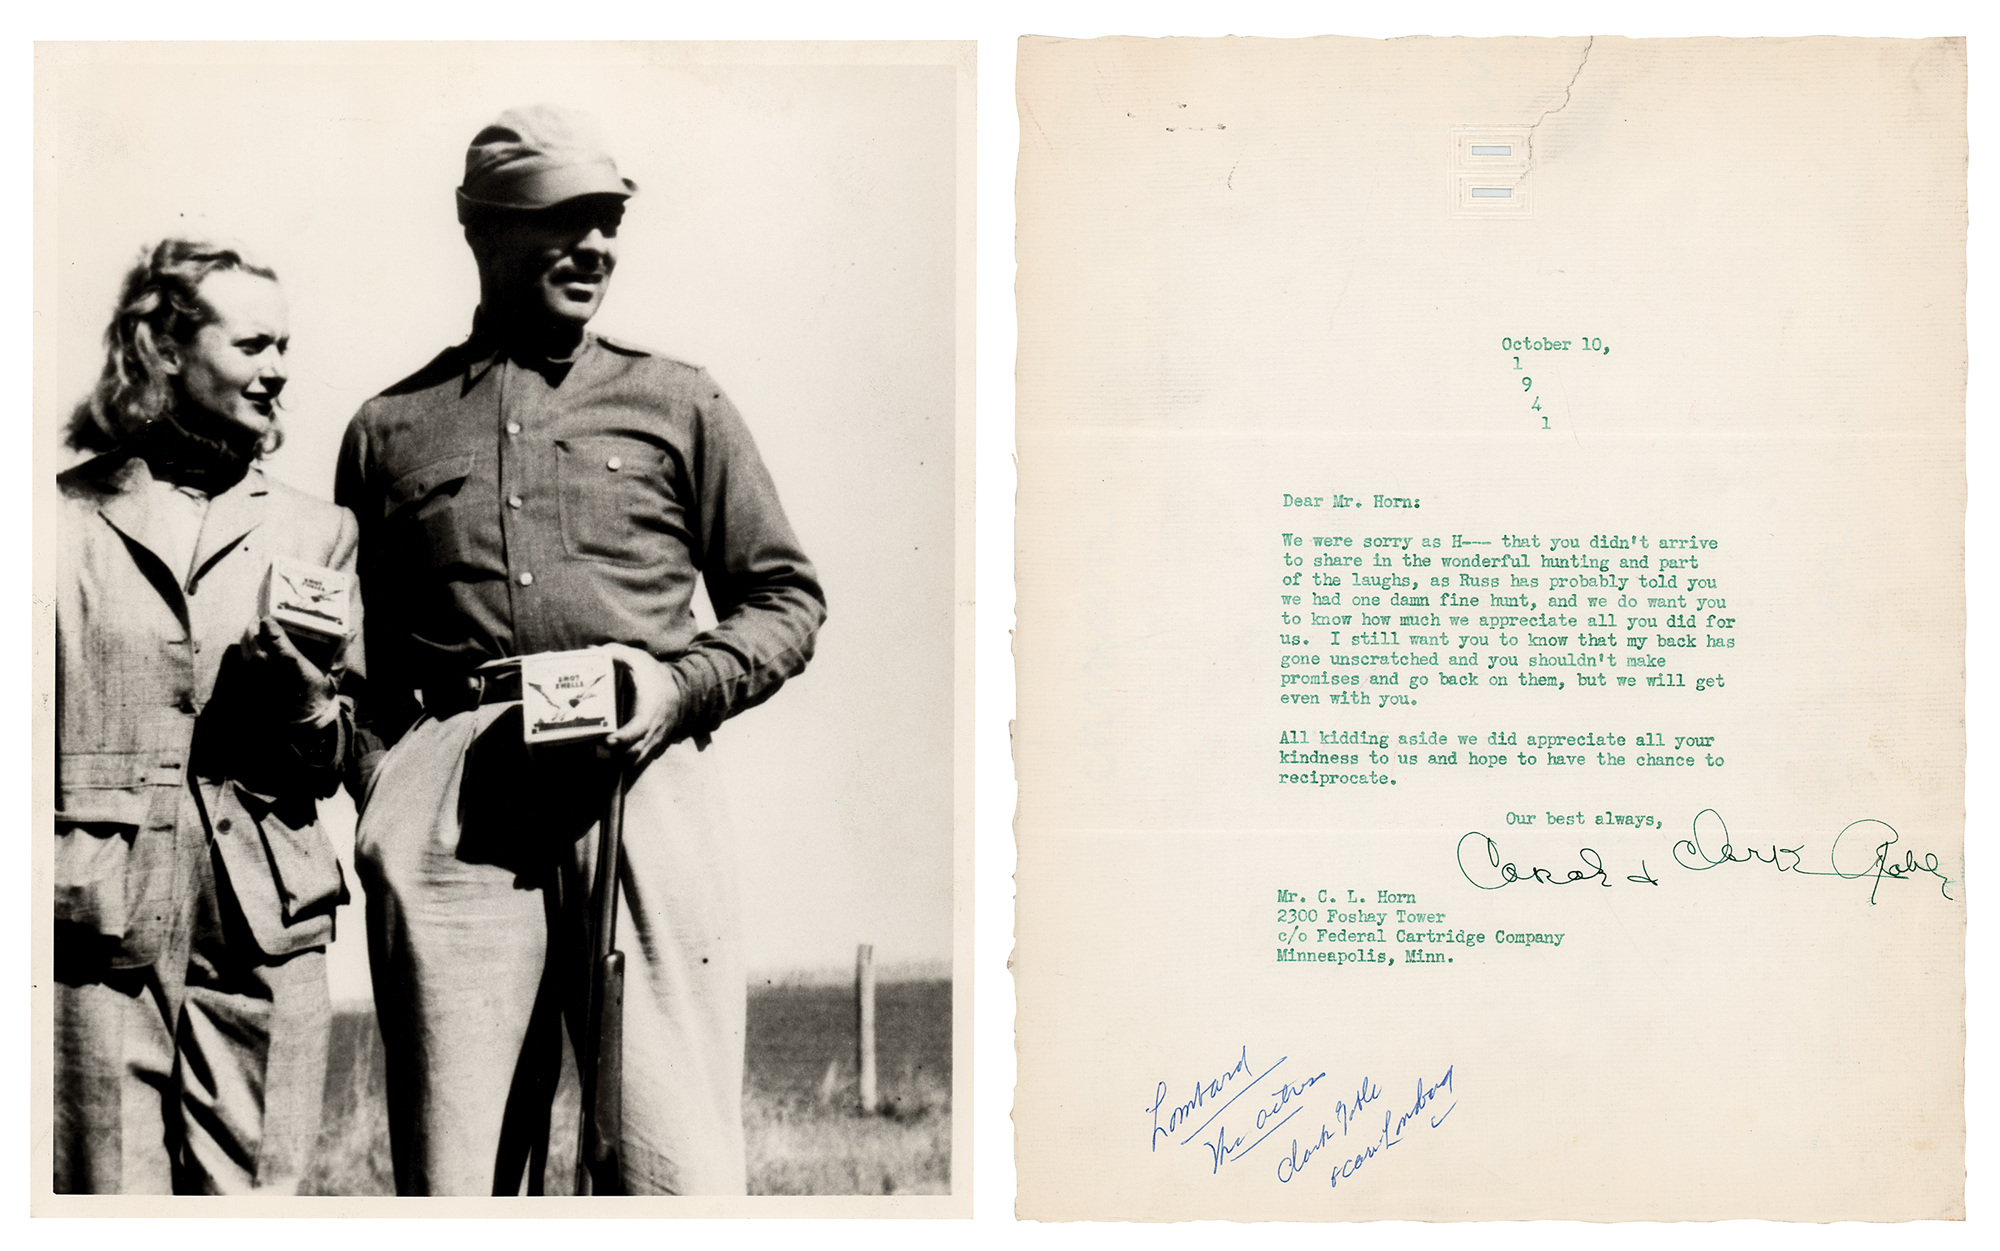 SHOT
SHELLS
SHOT
SHELLS
October 10,
1
9
4
1
Dear Mr. Horn:
We were sorry as H--- that you didn't arrive
to share in the wonderful hunting and part
of the laughs, as Russ has probably told you
we had one damn fine hunt, and we do want you
to know how much we appreciate all you did for
us.  I still want you to know that my back has
gone unscratched and you shouldn't make
promises and go back on them, but we will get
even with you.
All kidding aside we did appreciate all your
kindness to us and hope to have the chance to
reciprocate.
Our best always,
Carole & Clark Gable
Mr. C. L. Horn
2300 Foshay Tower
c/o Federal Cartridge Company
Minneapolis, Minn.
Lombard
The actress
Clark Gable
& Carol Lombard